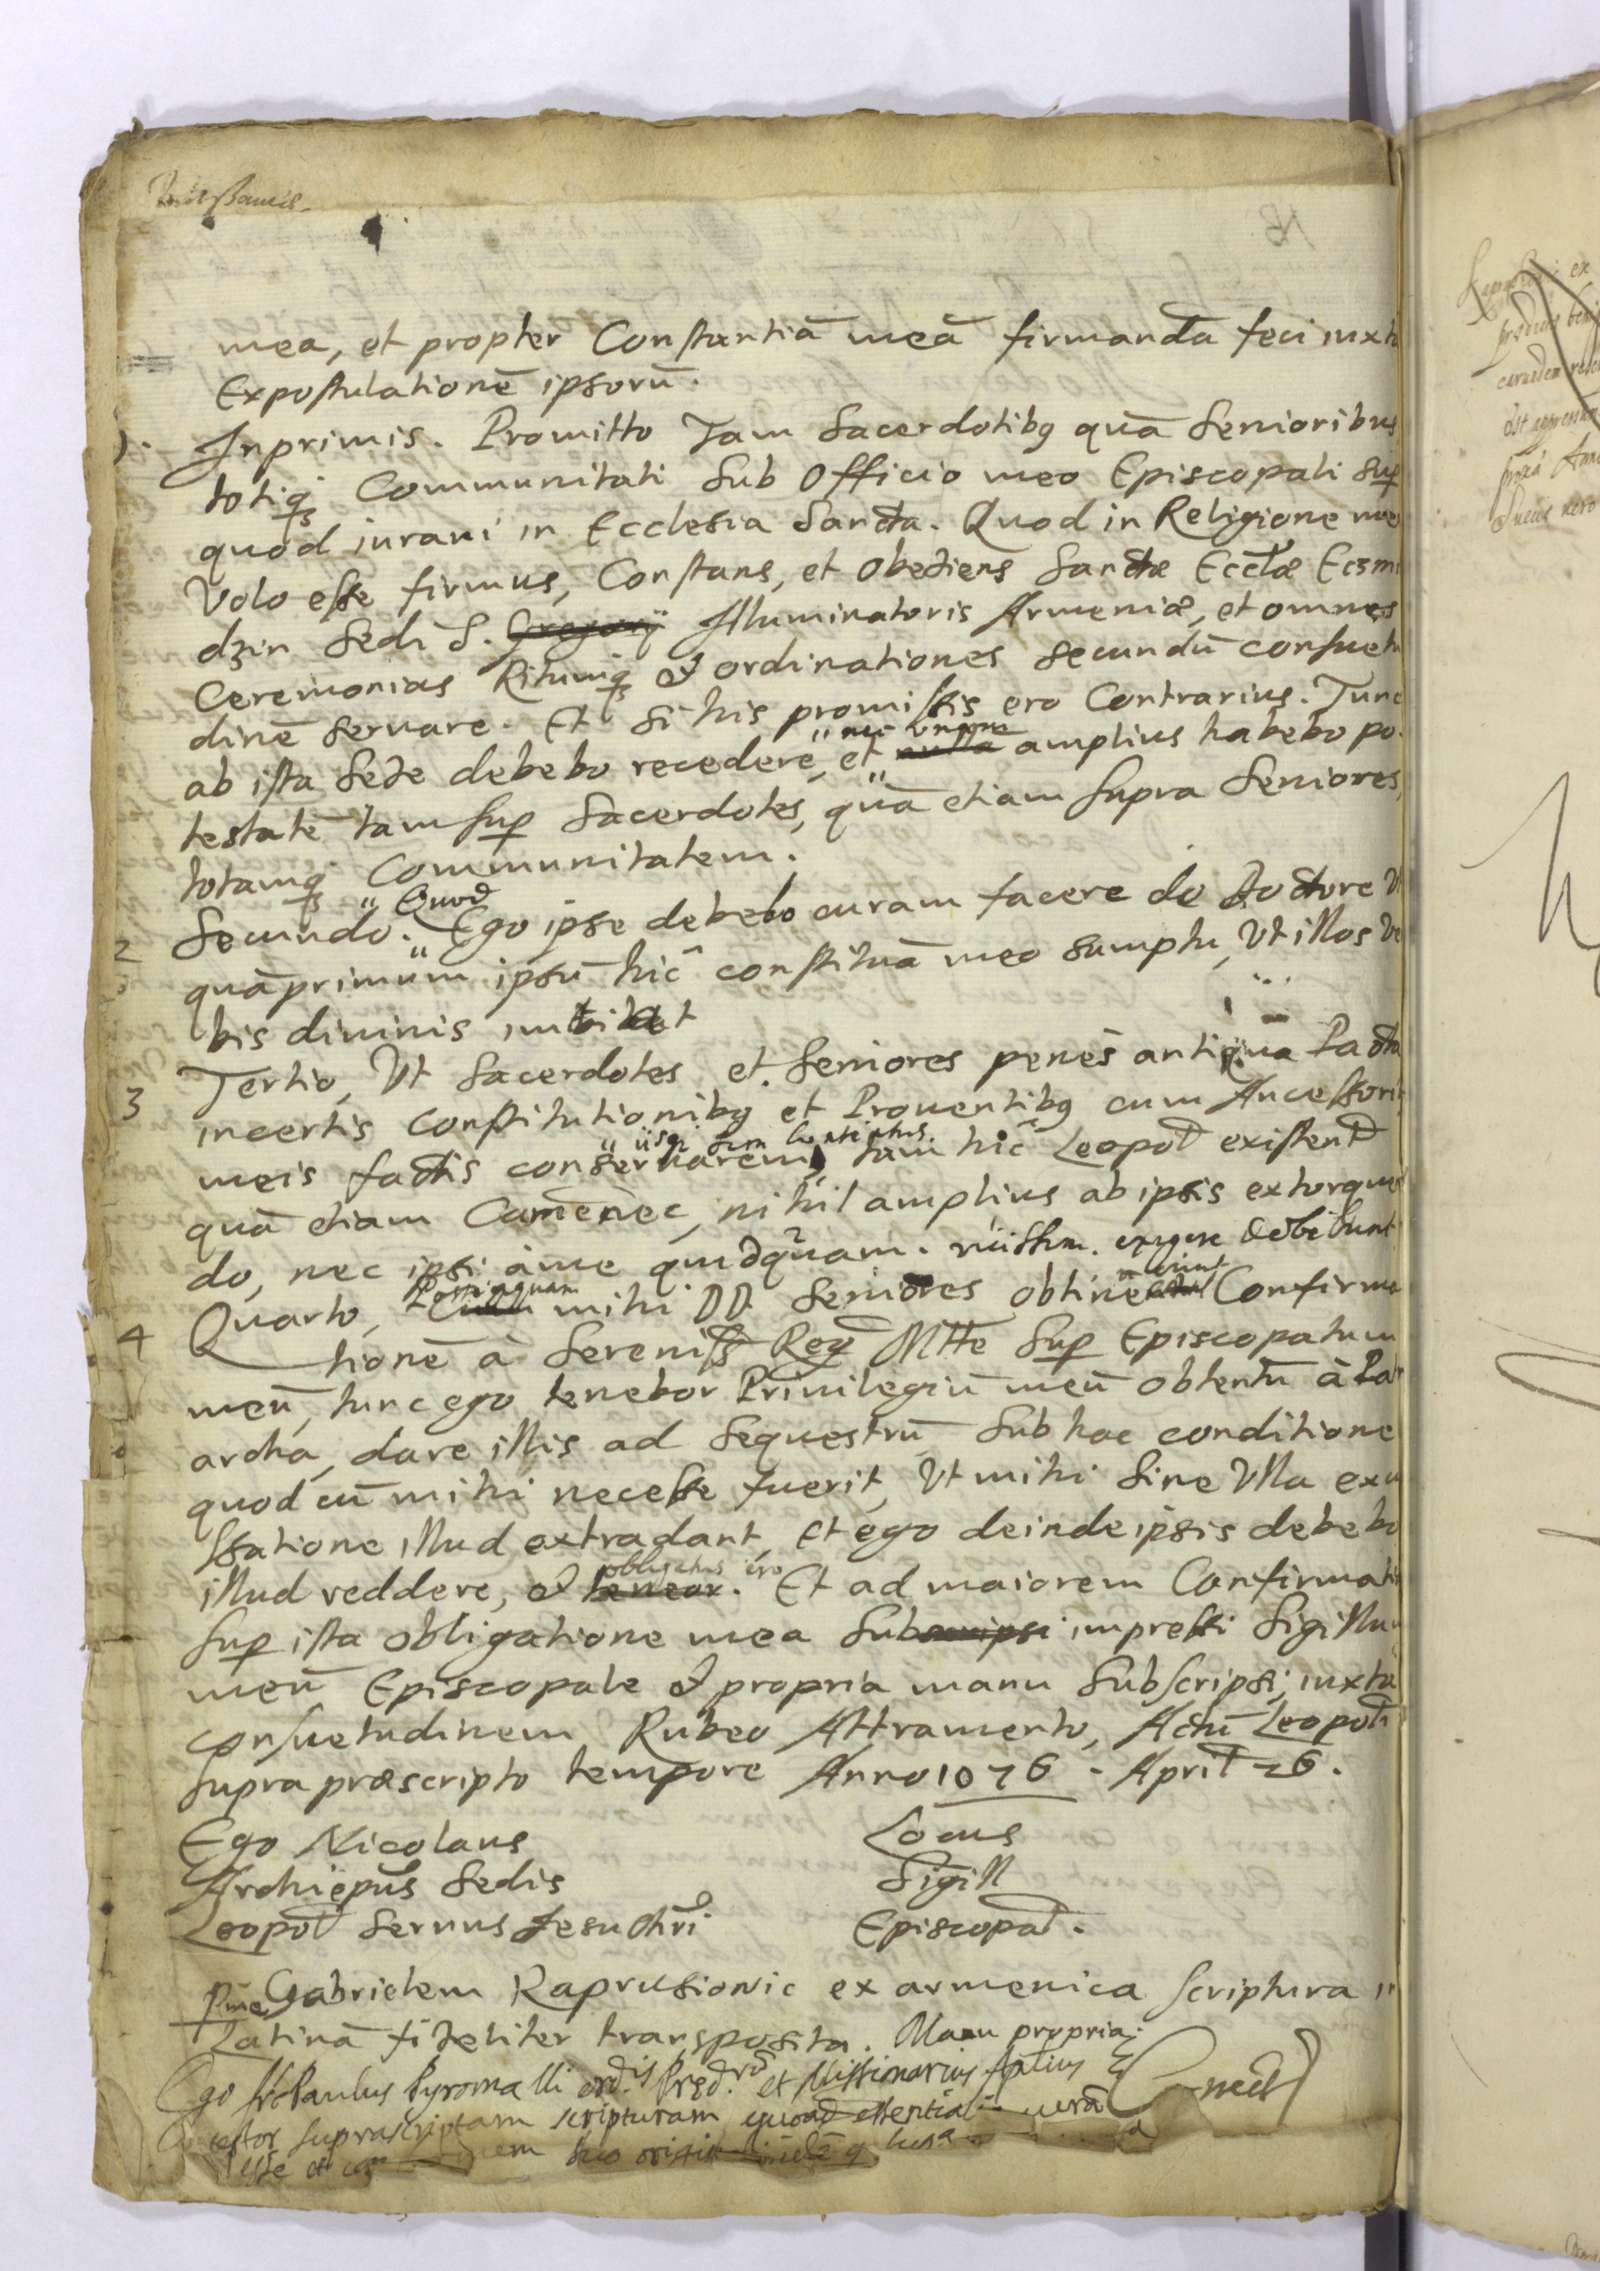 mea, et propter Constantiā meā firmandā feci iuxta
Expostulationē ipsorū.
1. Inprimis. Promitto Tam Sacerdotibȝ quā Senioribus
totiqȝ Communitati Sub Officio meo Episcopali sup
quod iuravi in Ecclesia Sancta. Quod in Religione mea
Volo esse firmus, Constans, et Obediens Sanctæ Ecclæ Ecsmi
dzin Sedi S. Gregorij Illuminatoris Armeniæ, et omnes
Ceremonias Ritumqȝ & ordinationes secundū consuetu
dinē servare. Et si his promissis ero Contrarius. Tunc
ab ista Sede debebo recedere, et nec unqm amplius habebo po-
testatē tam sup Sacerdotes, quā etiam supra Seniores,
totamqȝ Communitatem.
2 Secundo. Quod Ego ipse debebo curam facere de Doctore Vt
quāprimum ipsū hîc constituā meo sumptu, Vt illos Ver
bis divinis imbibat
3 Tertio, Vt Sacerdotes et Seniores penes antiqua Pacta
incertis Constitutionibȝ et Proventibȝ cum Ancessorib
meis factis conservarem, iisqȝ sim contentus. tam hîc Leopol existent
quā etiam Camenec, nihil amplius ab ipsis extorquen
do, nec ipsi à me quidquam. exigere debebunt
4 Quarto, Postquam mihi DD. Seniores obtinuerint Confirma
tionē à Sereniss Reg Mtte Sup Episcopatum
meū, tunc ego tenebor Privilegiū meū obtentū à Patri
archa, dare illis ad Sequestrū sub hac conditione
quod cū mihi necesse fuerit, Vt mihi sine Vlla excu
ssatione illud extradant, et ego deinde ipsis debebo
illud reddere, & tenear. obligatus ero Et ad maiorem Confirmati
Sup ista obligatione mea Subscripsi impressi Sigillum
meū Episcopale & propria manu Subscripsi, iuxta
consuetudinem Rubeo Attramento, Actū Leopoli
supra præscripto tempore Anno 1076 - April 26.
Ego Nicolaus
Archiepus Sedis
Leopol Servus Jesu Chri
Locus
Sigill
Episcopal.
Pme Gabrielem Kaprusiovic ex armenica scriptura in
Latinā fideliter transposita. Manu propria.
Ego fr Paulus Pyromalli ord.is Præd.rū et Missionarius Aplicus
testor suprascriptam scripturam quoad essential verā
esse et suo